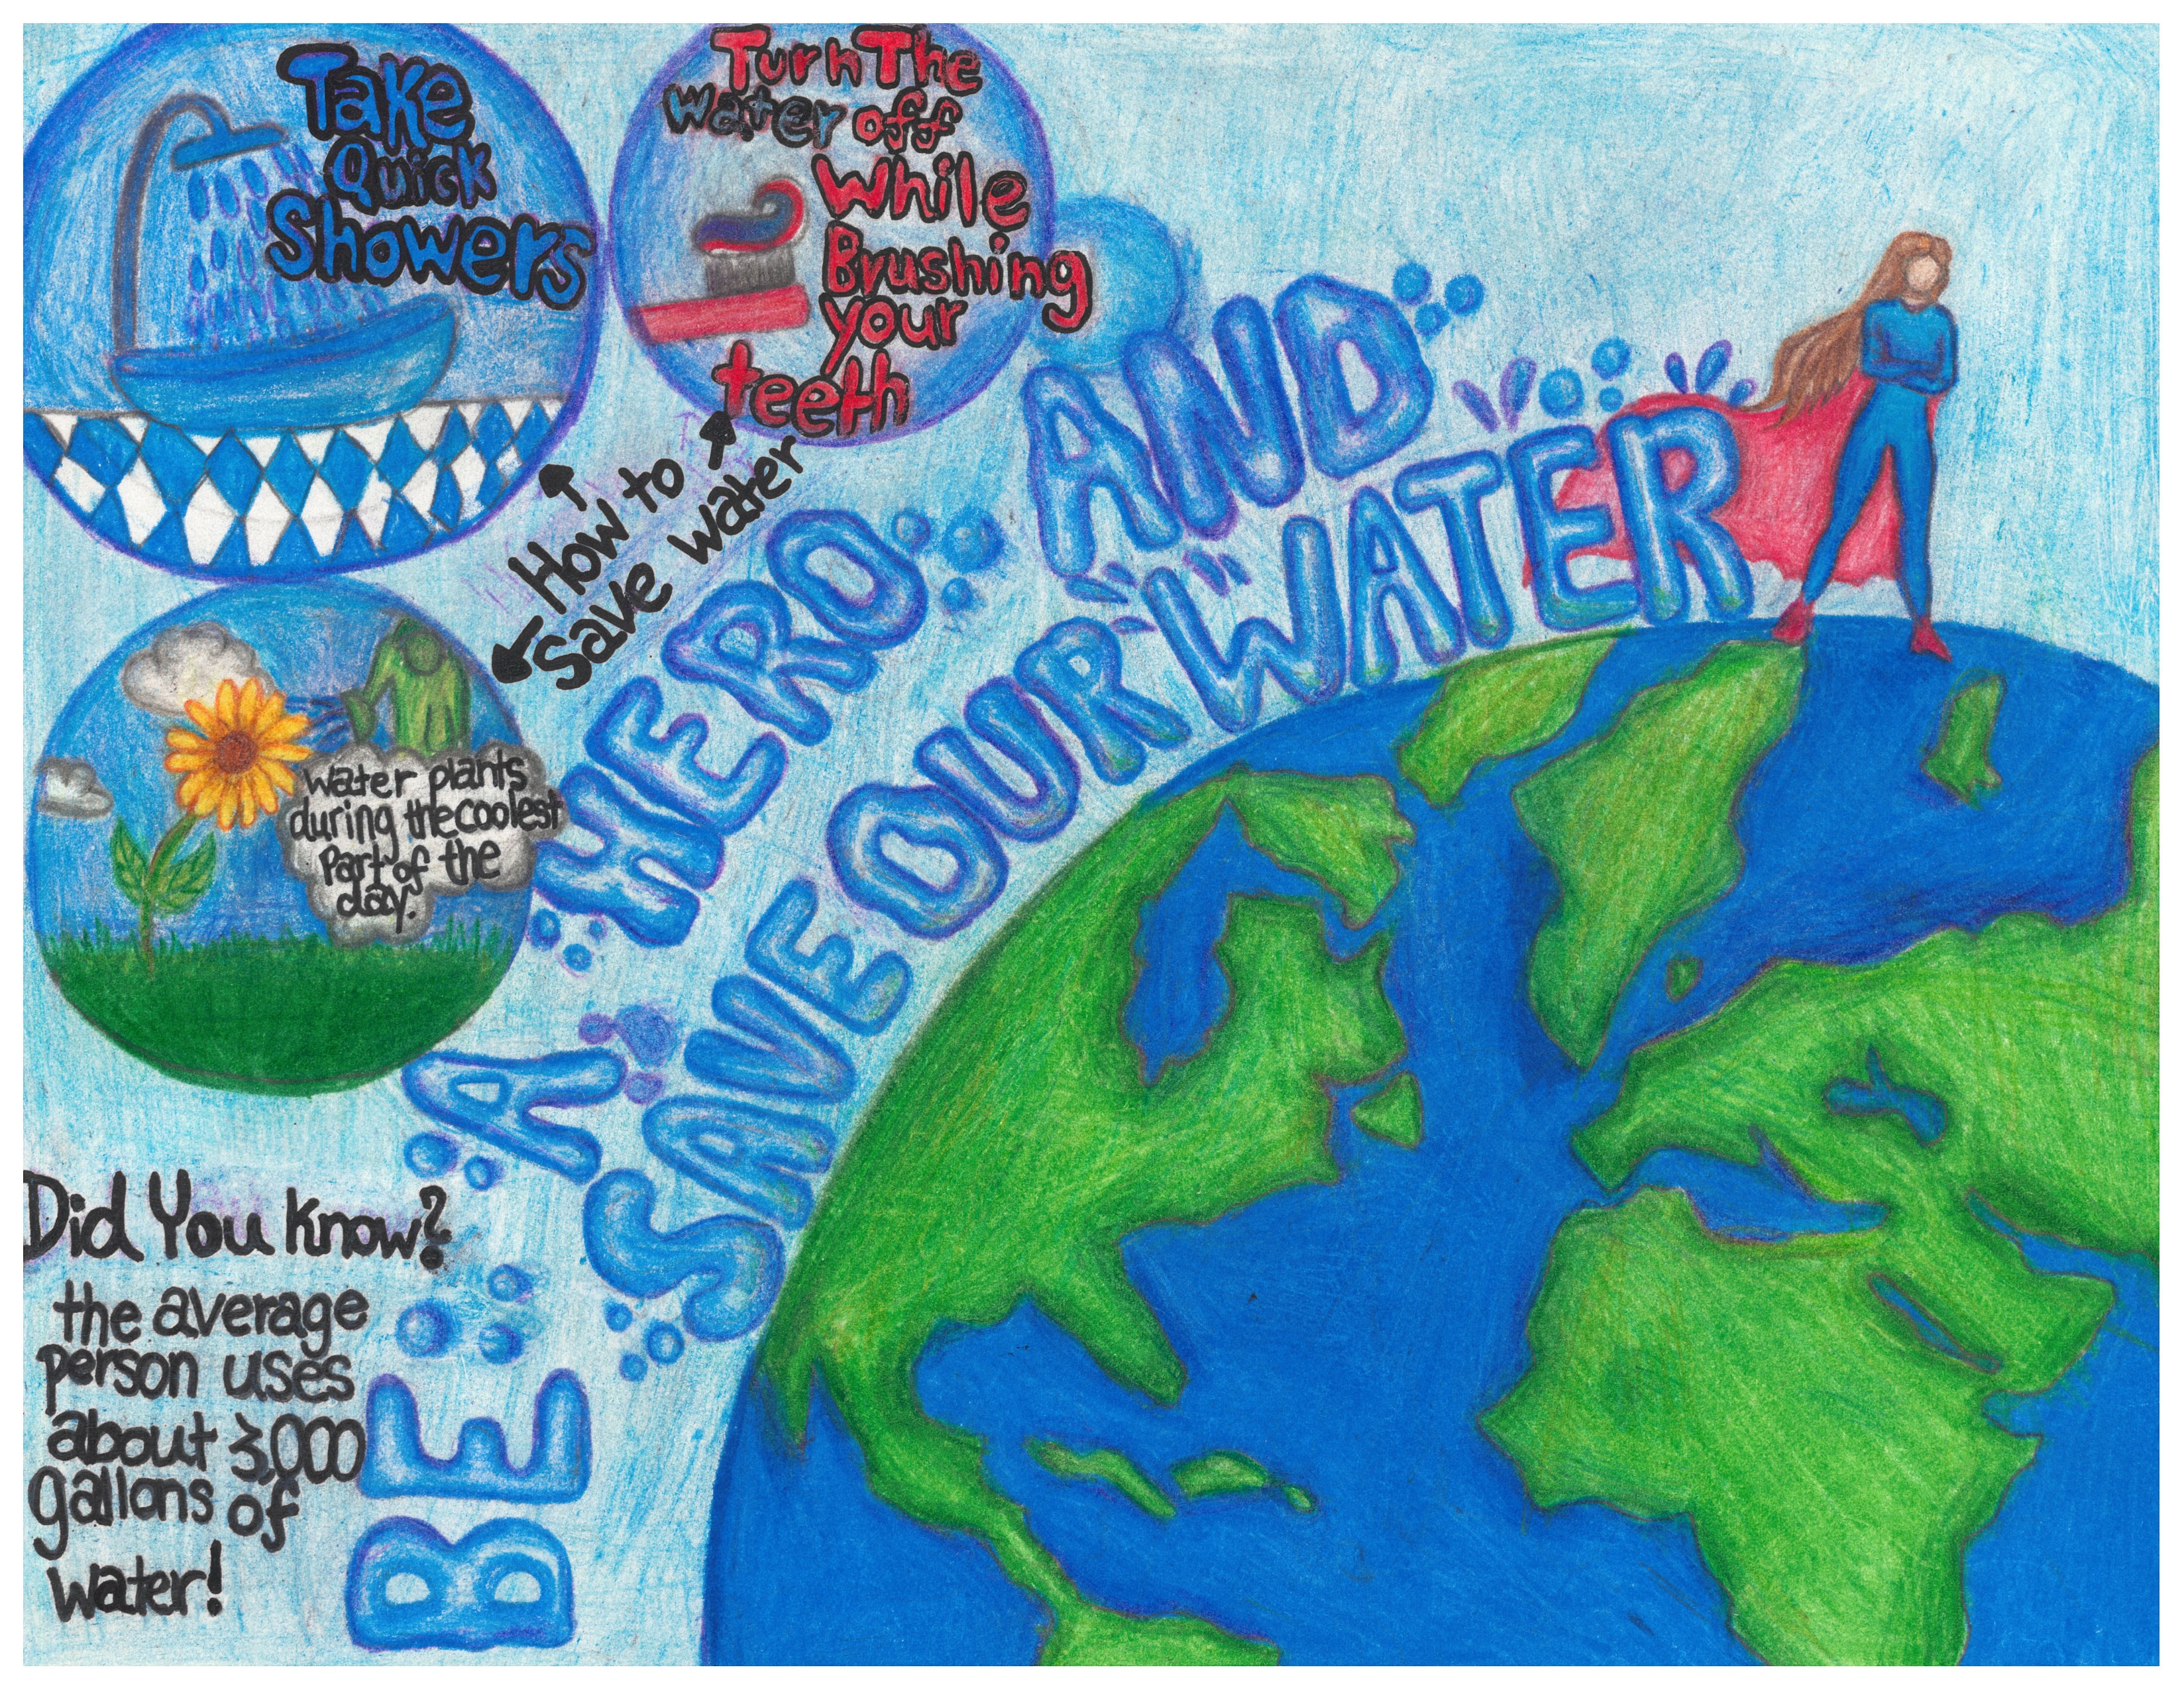 Take
Quick
Showers
Turn The
Water off
While
Brushing
your
teeth
How to
Save water
water plants
during the coolest
Part of the
day.
BE A HERO AND
SAVE OUR WATER
Did You know?
the average
person uses
about 3,000
gallons of
water!